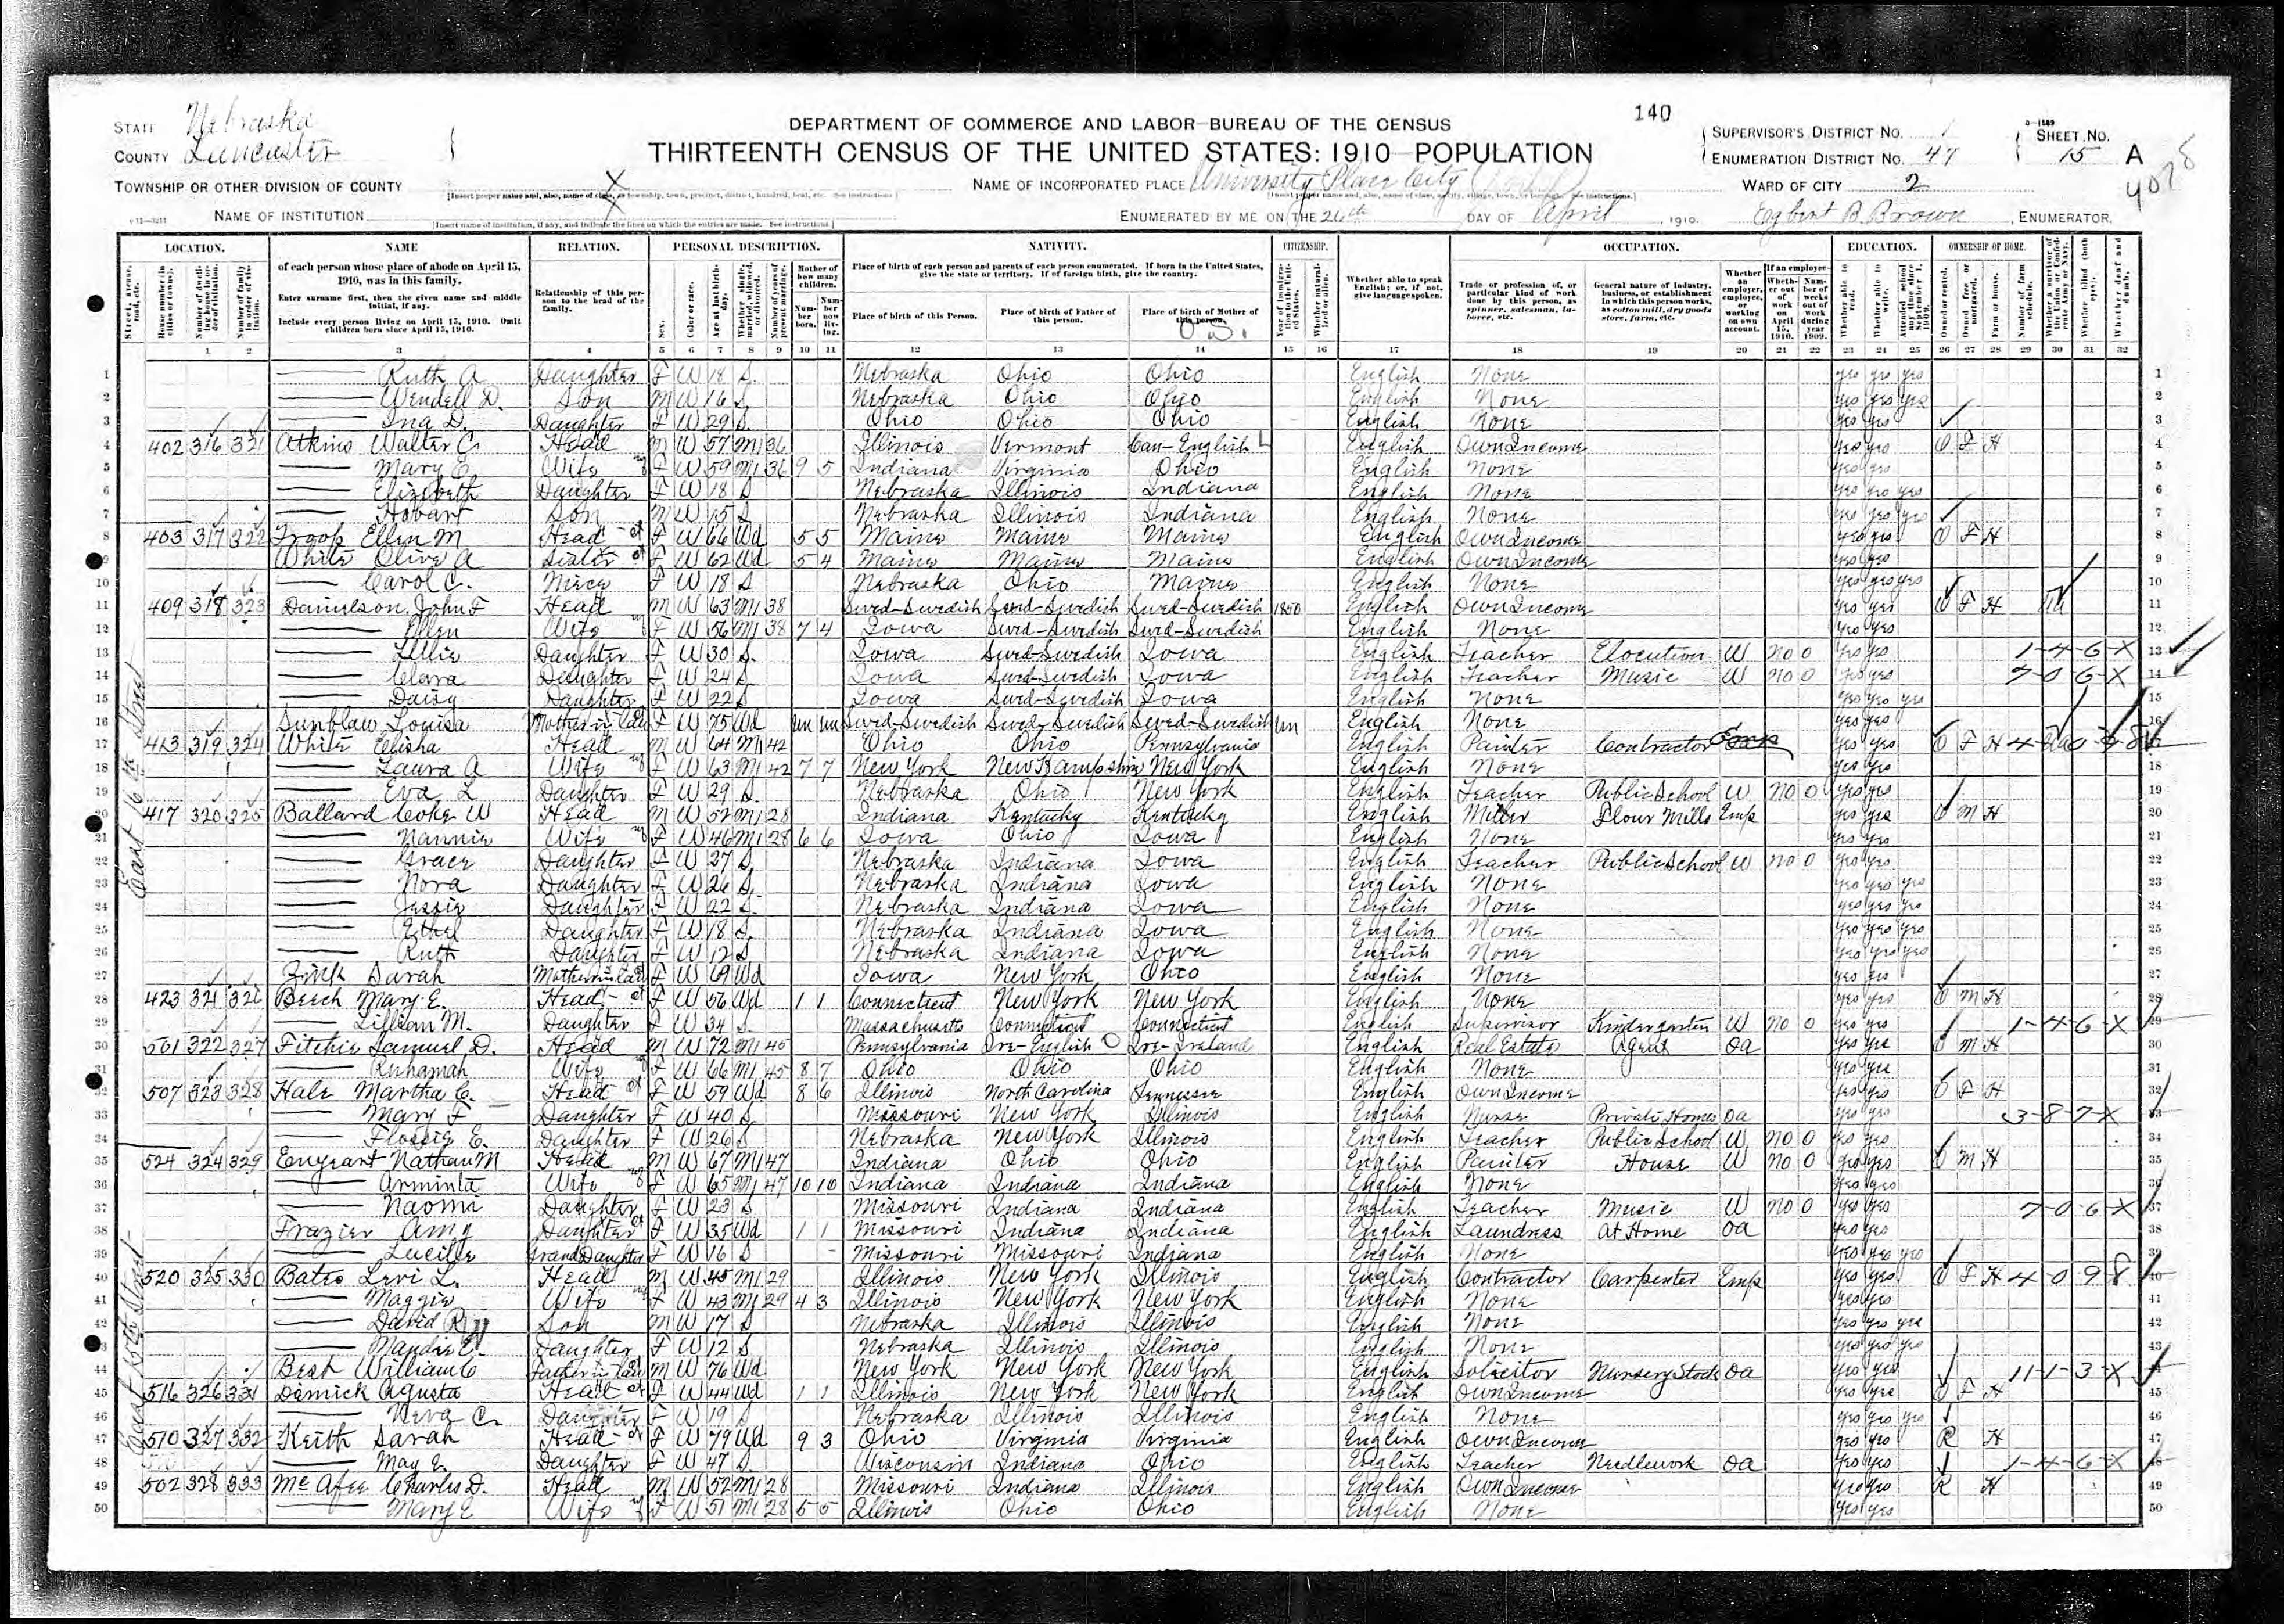 140
DEPARTMENT OF COMMERCE AND LABOR-BUREAU OF THE CENSUS
THIRTEENTH CENSUS OF THE UNITED STATES: 1910 POPULATION
STATE Nebraska
COUNTY Lancaster
SUPERVISOR'S DISTRICT No. 1
ENUMERATION DISTRICT No. 47
SHEET No. 15 A
TOWNSHIP OR OTHER DIVISION OF COUNTY X
NAME OF INCORPORATED PLACE University Place City
WARD OF CITY 2
NAME OF INSTITUTION X
ENUMERATED BY ME ON THE 26th DAY OF April, 1910. Egbert B. Brown, ENUMERATOR.
LOCATION. NAME RELATION. PERSONAL DESCRIPTION. NATIVITY. CITIZENSHIP. OCCUPATION. EDUCATION. OWNERSHIP OF HOME.
of each person whose place of abode on April 15, 1910, was in this family.
Enter surname first, then the given name and middle initial, if any.
Include every person living on April 15, 1910. Omit children born since April 15, 1910.
Relationship of this person to the head of the family.
Place of birth of each person and parents of each person enumerated. If born in the United States, give the state or territory. If of foreign birth, give the country.
Place of birth of this Person. Place of birth of Father of this person. Place of birth of Mother of this person.
Whether able to speak English; or, if not, give language spoken.
Trade or profession of, or particular kind of work done by this person, as spinner, salesman, laborer, etc.
General nature of industry, business, or establishment in which this person works, as cotton mill, dry goods store, farm, etc.
1 2 3 4 5 6 7 8 9 10 11 12 13 14 15 16 17 18 19 20 21 22 23 24 25 26 27 28 29 30 31 32
East 16th Street
1 Ruth A Daughter F W 18 S Nebraska Ohio Ohio English None yes yes yes 1
2 Wendell D. Son M W 16 S Nebraska Ohio Ohio English None yes yes yes 2
3 Ina D. Daughter F W 29 S Ohio Ohio Ohio English None yes yes 3
4 402 316 321 Atkins Walter C. Head M W 57 M1 36 Illinois Vermont Can-English English Own Income yes yes O F H 4
5 Mary E. Wife F W 59 M1 36 9 5 Indiana Virginia Ohio English None yes yes 5
6 Elizabeth Daughter F W 18 S Nebraska Illinois Indiana English None yes yes yes 6
7 Hobart Son M W 15 S Nebraska Illinois Indiana English None yes yes yes 7
8 403 317 322 Troop Ellen M Head F W 66 Wd 5 5 Maine Maine Maine English Own Income yes yes O F H 8
9 White Olive A Sister F W 62 Wd 5 4 Maine Maine Maine English Own Income yes yes 9
10 Carol C. Niece F W 18 S Nebraska Ohio Maine English None yes yes yes 10
11 409 318 323 Danielson John F Head M W 63 M1 38 Swed-Swedish Swed-Swedish Swed-Swedish 1850 English Own Income yes yes O F H 11
12 Ellen Wife F W 56 M1 38 7 4 Iowa Swed-Swedish Swed-Swedish English None yes yes 12
13 Lillie Daughter F W 30 S Iowa Swed-Swedish Iowa English Teacher Elocution W no 0 yes yes 1-4-6-X 13
14 Clara Daughter F W 24 S Iowa Swed-Swedish Iowa English Teacher Music W no 0 yes yes 7-0-6-X 14
15 Daisy Daughter F W 22 S Iowa Swed-Swedish Iowa English None yes yes yes 15
16 Sunblaw Louisa Mother in law F W 75 Wd un un Swed-Swedish Swed-Swedish Swed-Swedish un English None yes yes 16
17 413 319 324 White Elisha Head M W 64 M1 42 Ohio Ohio Pennsylvania English Painter Contractor Emp yes yes O F H 17
18 Laura A Wife F W 63 M1 42 7 7 New York New Hampshire New York English None yes yes 18
19 Eva L Daughter F W 29 S Nebraska Ohio New York English Teacher Public School W no 0 yes yes 19
20 417 320 325 Ballard Coke W Head M W 52 M1 28 Indiana Kentucky Kentucky English Miller Flour Mills Emp yes yes O M H 20
21 Nannie Wife F W 46 M1 28 6 6 Iowa Ohio Iowa English None yes yes 21
22 Grace Daughter F W 27 S Nebraska Indiana Iowa English Teacher Public School W no 0 yes yes 22
23 Nora Daughter F W 26 S Nebraska Indiana Iowa English None yes yes yes 23
24 Jessie Daughter F W 22 S Nebraska Indiana Iowa English None yes yes yes 24
25 Ethel Daughter F W 18 S Nebraska Indiana Iowa English None yes yes yes 25
26 Ruth Daughter F W 12 S Nebraska Indiana Iowa English None yes yes yes 26
27 Zink Sarah Mother in law F W 69 Wd Iowa New York Ohio English None yes yes 27
28 423 321 326 Beech Mary E. Head F W 56 Wd 1 1 Connecticut New York New York English None yes yes O M H 28
29 Lillian M. Daughter F W 34 S Massachusetts Connecticut Connecticut English Supervisor Kindergarten W no 0 yes yes 1-4-6-X 29
30 501 322 327 Fitchie Samuel D. Head M W 72 M1 45 Pennsylvania Ire-English Ire-Ireland English Real Estate Agent OA yes yes O M H 30
31 Ruhamah Wife F W 66 M1 45 8 7 Ohio Ohio Ohio English None yes yes 31
32 507 323 328 Hale Martha C. Head F W 59 Wd 8 6 Illinois North Carolina Tennessee English Own Income yes yes O F H 32
33 Mary F Daughter F W 40 S Missouri New York Illinois English Nurse Private Homes OA yes yes 3-8-7-X 33
34 Flossie E. Daughter F W 26 S Nebraska New York Illinois English Teacher Public School W no 0 yes yes 34
East 15th Street
35 524 324 329 Enyeart Nathan M Head M W 67 M1 47 Indiana Ohio Ohio English Painter House W no 0 yes yes O M H 35
36 Arminta Wife F W 65 M1 47 10 10 Indiana Indiana Indiana English None yes yes 36
37 Naomi Daughter F W 23 S Missouri Indiana Indiana English Teacher Music W no 0 yes yes 7-0-6-X 37
38 Frazier Amy Daughter F W 35 Wd 1 1 Missouri Indiana Indiana English Laundress At Home OA yes yes 38
39 Lucille Grand Daughter F W 16 S Missouri Missouri Indiana English None yes yes yes 39
40 520 325 330 Bates Levi L. Head M W 45 M1 29 Illinois New York Illinois English Contractor Carpenter Emp yes yes O F H 4-0 9 8 40
41 Maggie Wife F W 43 M1 29 4 3 Illinois New York New York English None yes yes 41
42 David R Son M W 17 S Nebraska Illinois Illinois English None yes yes yes 42
43 Mandie E Daughter F W 12 S Nebraska Illinois Illinois English None yes yes yes 43
44 Best William C Father in law M W 76 Wd New York New York New York English Solicitor Nursery Stock OA yes yes 11-1-3-X 44
45 516 326 331 Dimick Agusta Head F W 44 Wd 1 1 Illinois New York New York English Own Income yes yes O F H 45
46 Neva C. Daughter F W 19 S Nebraska Illinois Illinois English None yes yes yes 46
47 510 327 332 Keith Sarah Head F W 79 Wd 9 3 Ohio Virginia Virginia English Own Income yes yes R H 47
48 May E. Daughter F W 47 S Wisconsin Indiana Ohio English Teacher Needlework OA yes yes 1-4-6-X 48
49 502 328 333 McAfee Charles D. Head M W 52 M1 28 Missouri Indiana Illinois English Own Income yes yes R H 49
50 Mary E Wife F W 51 M1 28 5 5 Illinois Ohio Ohio English None yes yes 50